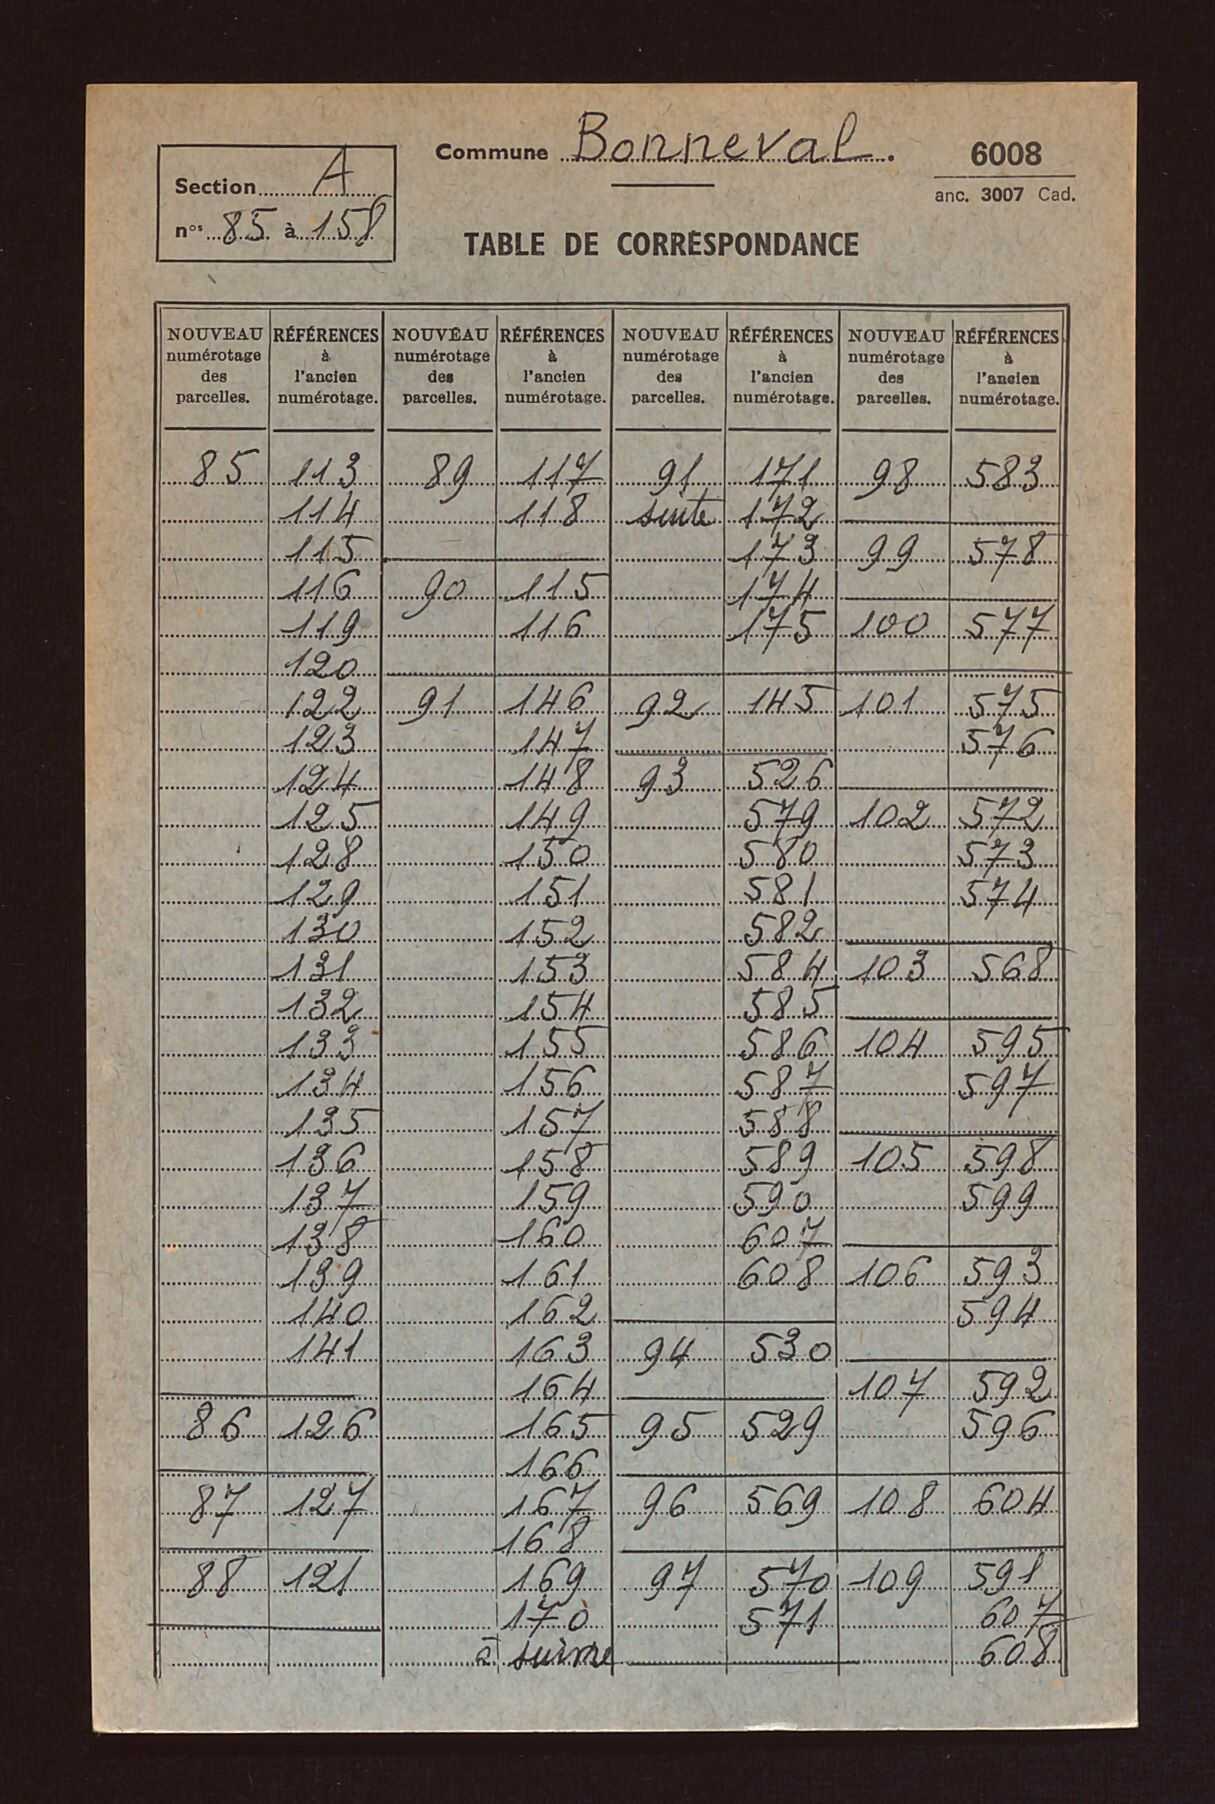 Section A
nos 85 à 158
Commune Bonneval.
6008
anc. 3007 Cad.
TABLE DE CORRESPONDANCE
NOUVEAU RÉFÉRENCES NOUVEAU RÉFÉRENCES NOUVEAU RÉFÉRENCES NOUVEAU RÉFÉRENCES
numérotage à numérotage à numérotage à numérotage à
des l'ancien des l'ancien des l'ancien des l'ancien
parcelles. numérotage. parcelles. numérotage. parcelles. numérotage. parcelles. numérotage.
85 113 89 117 91 171 98 583
114 118 suite 172
115 173 99 578
116 90 115 174
119 116 175 100 577
120
122 91 146 92 145 101 575
123 147 576
124 148 93 526
125 149 579 102 572
128 150 580 573
129 151 581 574
130 152 582
131 153 584 103 568
132 154 585
133 155 586 104 595
134 156 587 597
135 157 588
136 158 589 105 598
137 159 590 599
138 160 607
139 161 608 106 593
140 162 594
141 163 94 530
164 107 592
86 126 165 95 529 596
166
87 127 167 96 569 108 604
168
88 121 169 97 570 109 591
170 571 607
à suivre 608